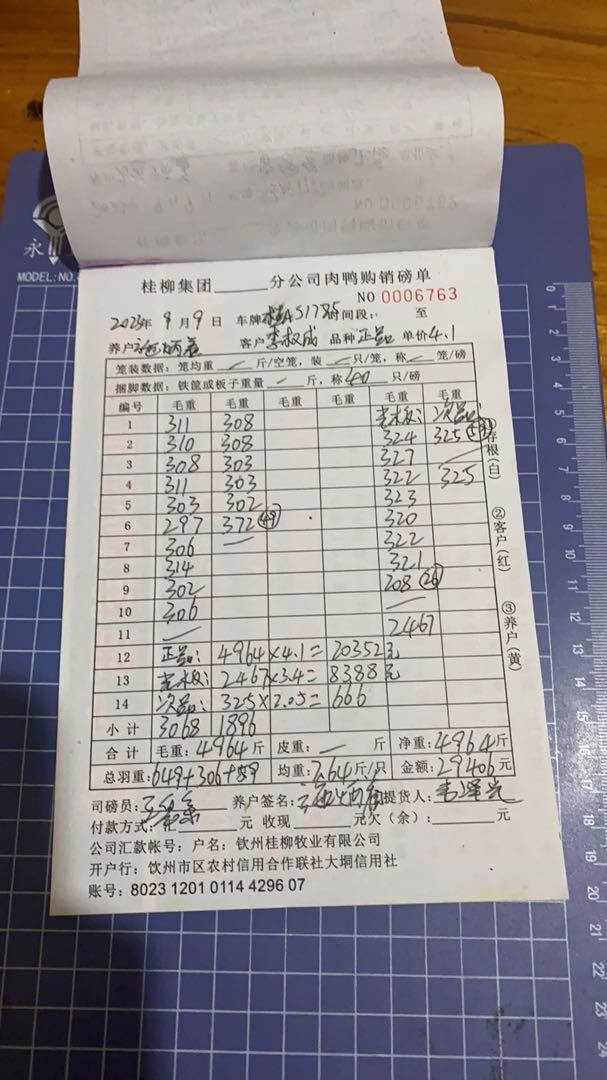 永
MODEL:NO.
桂柳集团______分公司肉鸭购销磅单
NO 0006763
2023年 9月9日 车牌 AS1785 时间段: 至
养户 客户 李权成 品种 正品 单价 4.1
笼装数据: 笼均重 — 斤/空笼, 装 — 只/笼, 称 — 笼/磅
捆脚数据: 铁筐或板子重量 — 斤, 称 40 只/磅
编号 毛重 毛重 毛重 毛重 毛重 毛重
1 311 308 次品:
2 310 308 324 325
3 308 303 327 —
4 311 303 322 325
5 303 302 323
6 297 372 49 320
7 306 — 322
8 314 321
9 302 208 26
10 306 —
11 — 2467
12 正品: 4964×4.1= 20352元
13 2467×3.4= 8388元
14 次品: 325×2.05= 666
小计 3068 1896
合计 毛重: 4964斤 皮重: — 斤 净重: 4964斤
总羽重: 649+306+59 均重: 7.64斤/只 金额: 29406元
司磅员: 养户签名: 提货人:
付款方式: 汇______元 收现______元欠(余): ______元
公司汇款帐号: 户名: 钦州桂柳牧业有限公司
开户行: 钦州市区农村信用合作联社大垌信用社
账号: 8023 1201 0114 4296 07
①存根(白)
②客户(红)
③养户(黄)